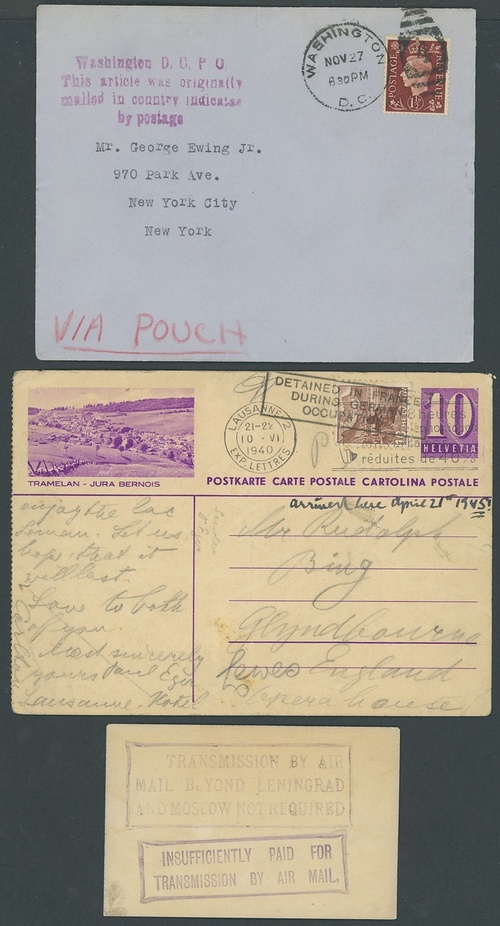 Washington D. C. P O
This article was originally
mailed in country indicated
by postage
WASHINGTON
NOV 27
630PM
D. C.
POSTAGE
REVENUE
1½
Mr. George Ewing Jr.
970 Park Ave.
New York City
New York
VIA POUCH
DETAINED IN FRANCE
DURING GERMAN
OCCUPATION
LAUSANNE 2
21-22
10 - VI
1940
EXP. LETTRES
heures
réduites de 40%
10
HELVETIA
TRAMELAN - JURA BERNOIS
POSTKARTE CARTE POSTALE CARTOLINA POSTALE
arrived here April 21st 1945!
enjoy the lac
Leman. Let us
hope that it
will last.
Love to both
of you.
Most sincerely
yours Paul
Lausanne. Hotel
Carlton
Mr Rudolph
Bing
Glyndbourne
Lewes England
Opera house
TRANSMISSION BY AIR
MAIL BEYOND LENINGRAD
AND MOSCOW NOT REQUIRED
INSUFFICIENTLY PAID FOR
TRANSMISSION BY AIR MAIL.